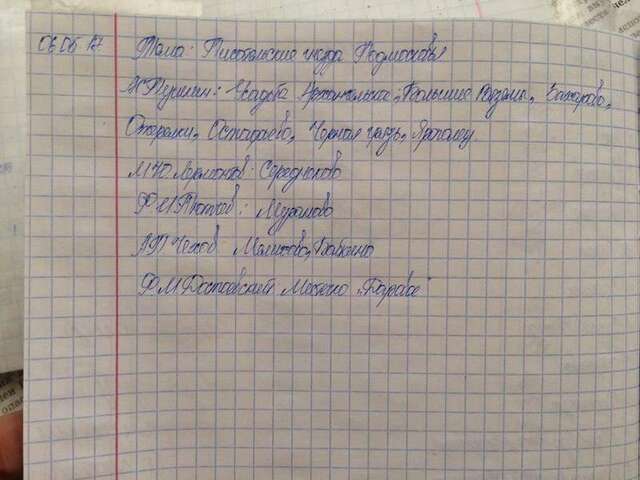 06.06.17 Тема: Писательские гнезда Подмосковья
А Пушкин: Усадьба Архангельское, Большие Вязёмы, Захарово,
Остафьево, Черная грязь, Ярополец.
М Ю Лермонтов: Середниково
Ф И Тютчев: Мураново
А П Чехов: Мелихово, Бабкино
Ф. М Достоевский Местечко "Даровое"